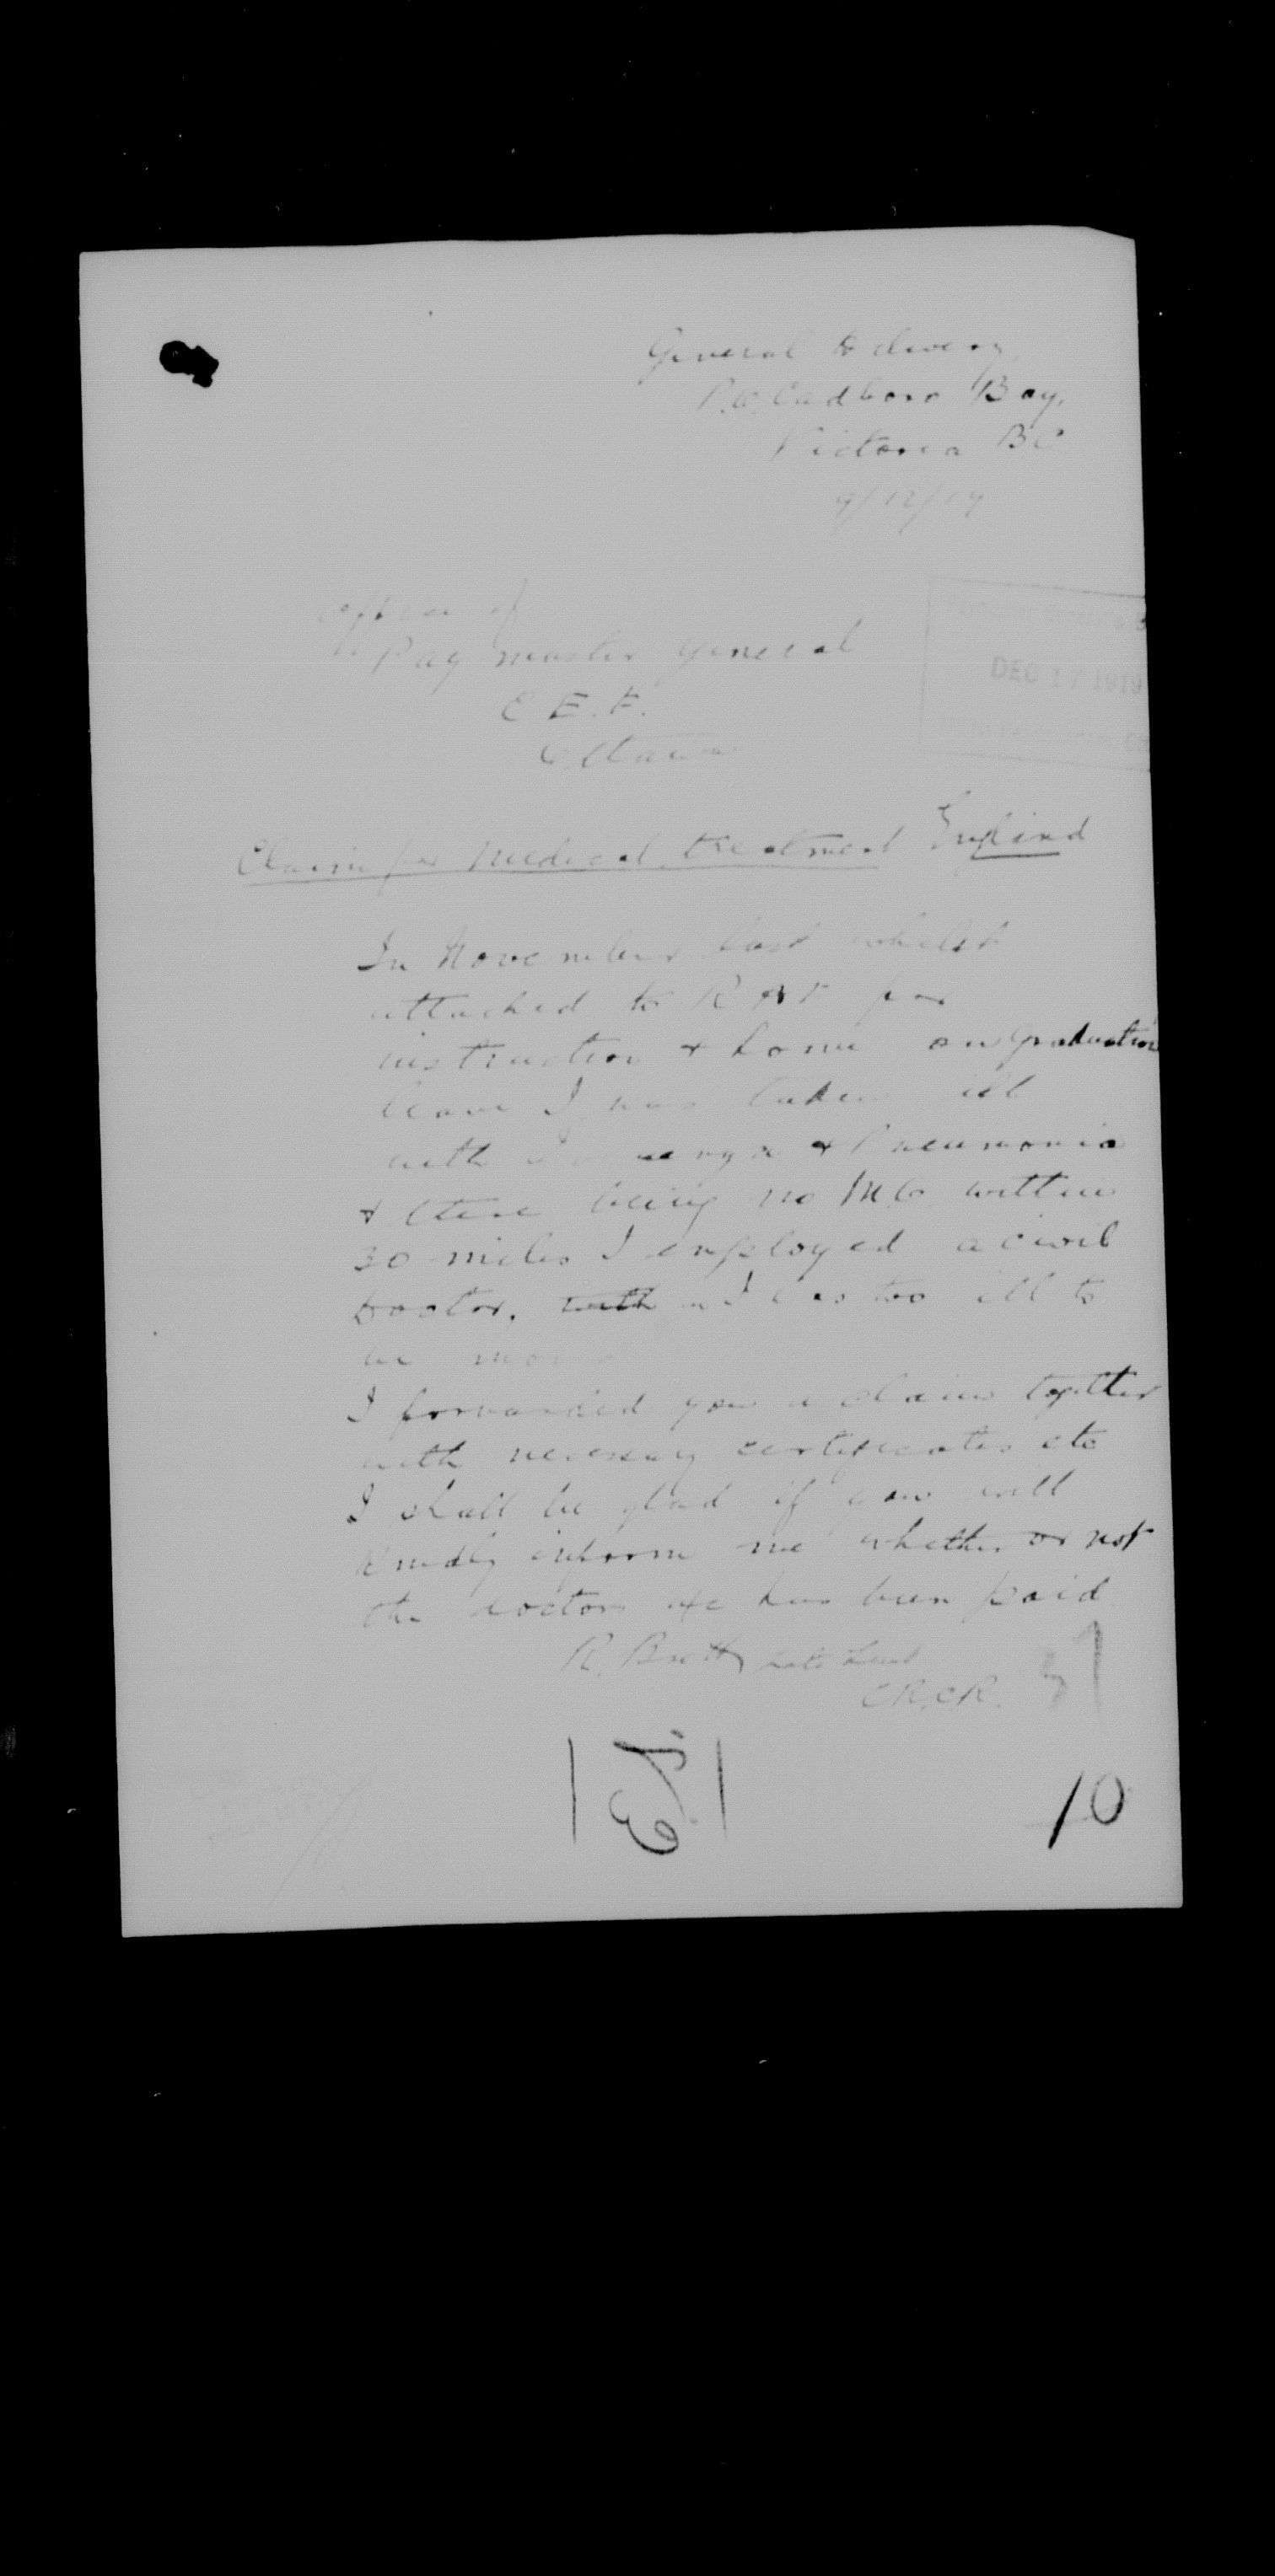 General delivery
P.O. Cadboro Bay,
Victoria BC
9/12/19
Office of
Paymaster General
C.E.F.
Ottawa
DEC 17 1919
Claim for Medical treatment England
In November last whilst
attached to R A F for
instruction & home on graduation
leave I was taken ill
with & Pneumonia
& there being no M.O. within
30 miles I employed a civil
Doctor, with I was too ill to
be moved
I forwarded you a claim together
with necessary certificates etc
I shall be glad if you will
kindly inform me whether or not
the doctors a/c has been paid
R. Brett late Lieut
10